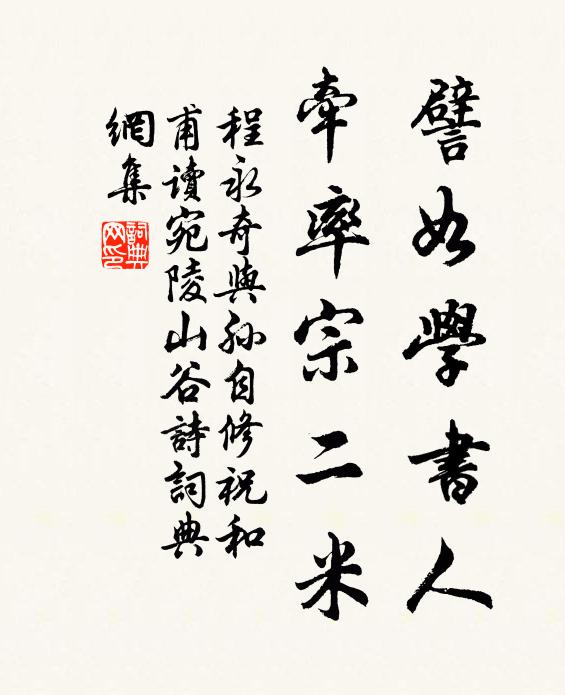 譬如學書人
牽率宗二米
程永奇與孫自修祝和
甫讀宛陵山谷詩詞典
網集
詞典網印